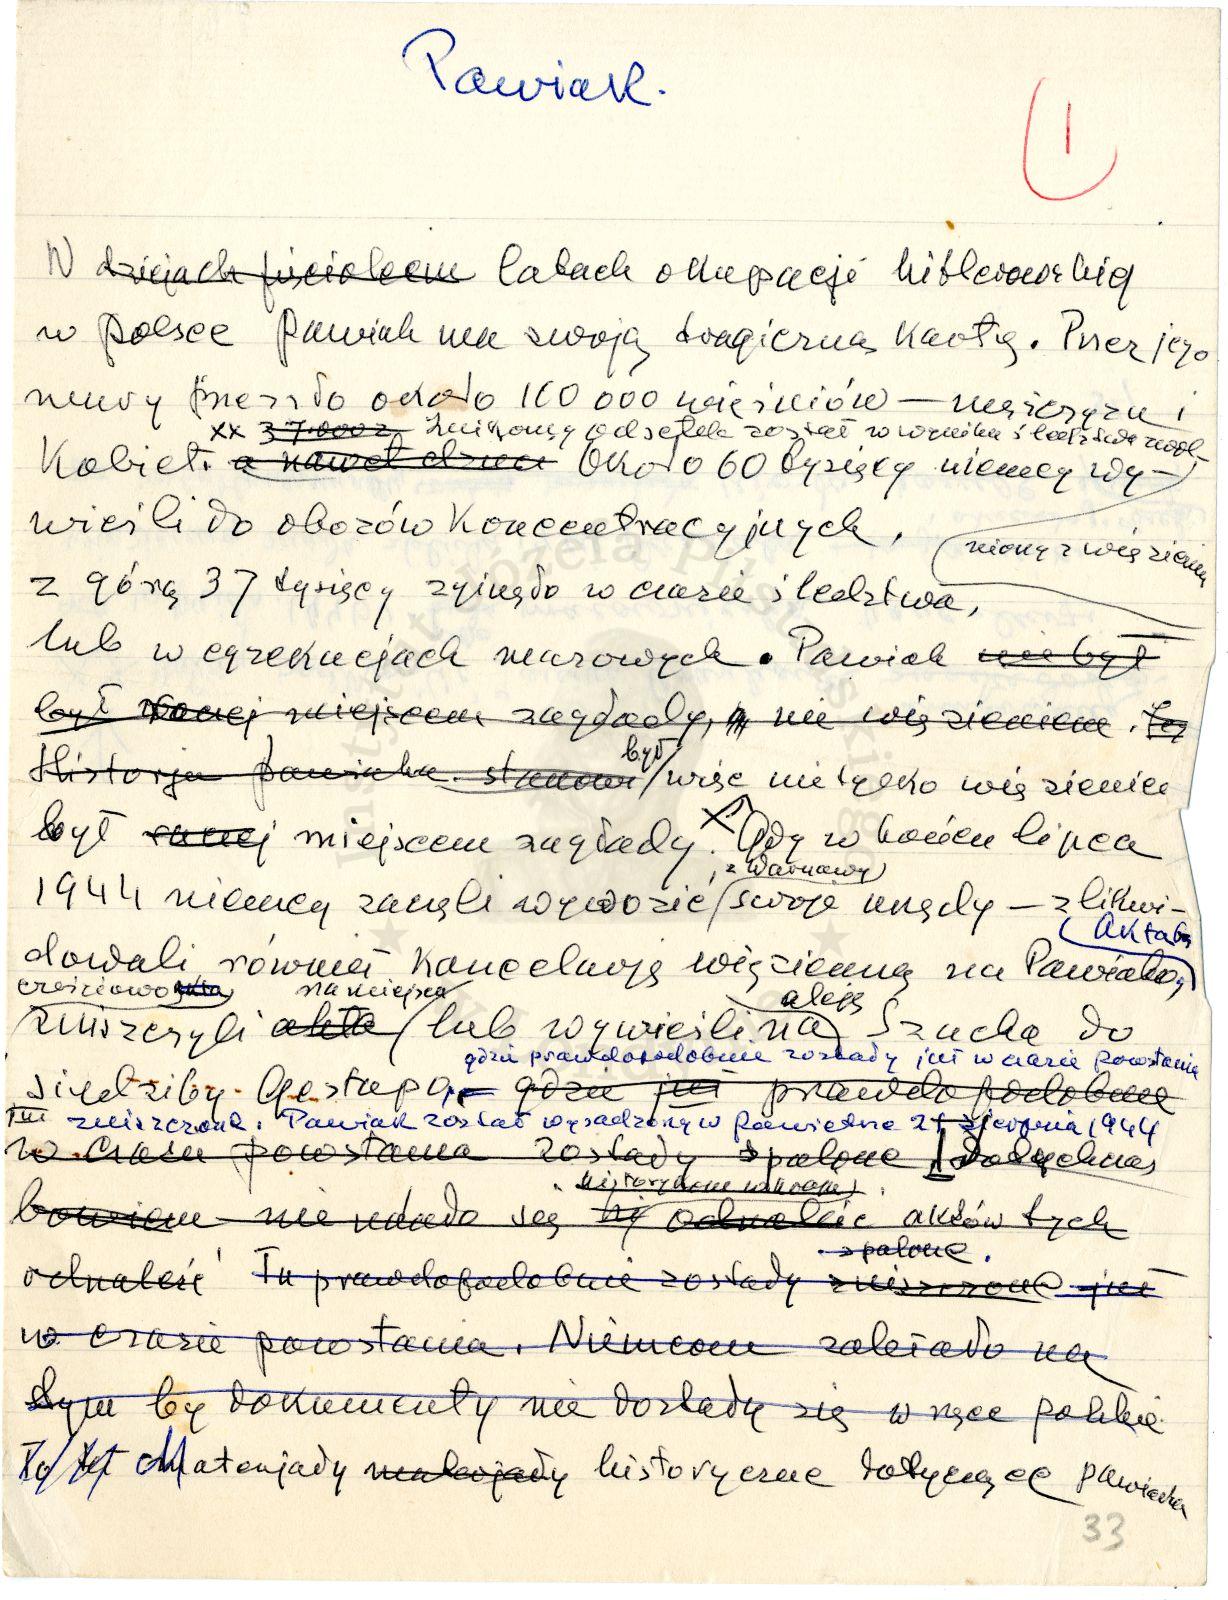 Pawiak.
1
W dziejach pięcioleciu latach okupacji hitlerowskiej
w Polsce Pawiak ma swoją tragiczną kartę. Przez jego
mury przeszło około 100 000 więźniów — mężczyzn i
xx 37.000 z. Znikomy odsetek został w wyniku śledztwa zwol-
kobiet. a nawet dzieci Około 60 tysięcy niemcy wy-
wieźli do obozów koncentracyjnych,
niony z więzienia
z górą 37 tysięcy zginęło w czasie śledztwa,
lub w egzekucjach masowych. Pawiak nie był
był raczej miejscem zagłady, nie więzieniem.
był
Historja pawiaka stanowi więc nie tylko więzieniem
był raczej miejscem zagłady. Gdy w końcu lipca
z Warszawy
1944 niemcy zaczęli wywozić swoje urzędy — zlikwi-
Akta
dowali również kancelarię więzienną na Pawiaku,
częściowo na miejscu aleję
zniszczyli akta lub wywieźli na Szucha do
gdzie prawdopodobnie zostały już w czasie powstania
siedziby Gestapo, gdzie już prawdopodobnie
zniszczone. Pawiak został wysadzony w powietrze 21 sierpnia 1944
w czasie powstania zostały spalone Dotychczas
historykom
bowiem nie udało się odnaleźć aktów tych
spalone.
odnaleźć Tu prawdopodobnie zostały zniszczone już
w czasie powstania. Niemcom zależało na
tym by dokumenty nie dostały się w ręce polskie.
Materjały materjały historyczne dotyczące pawiaka
33